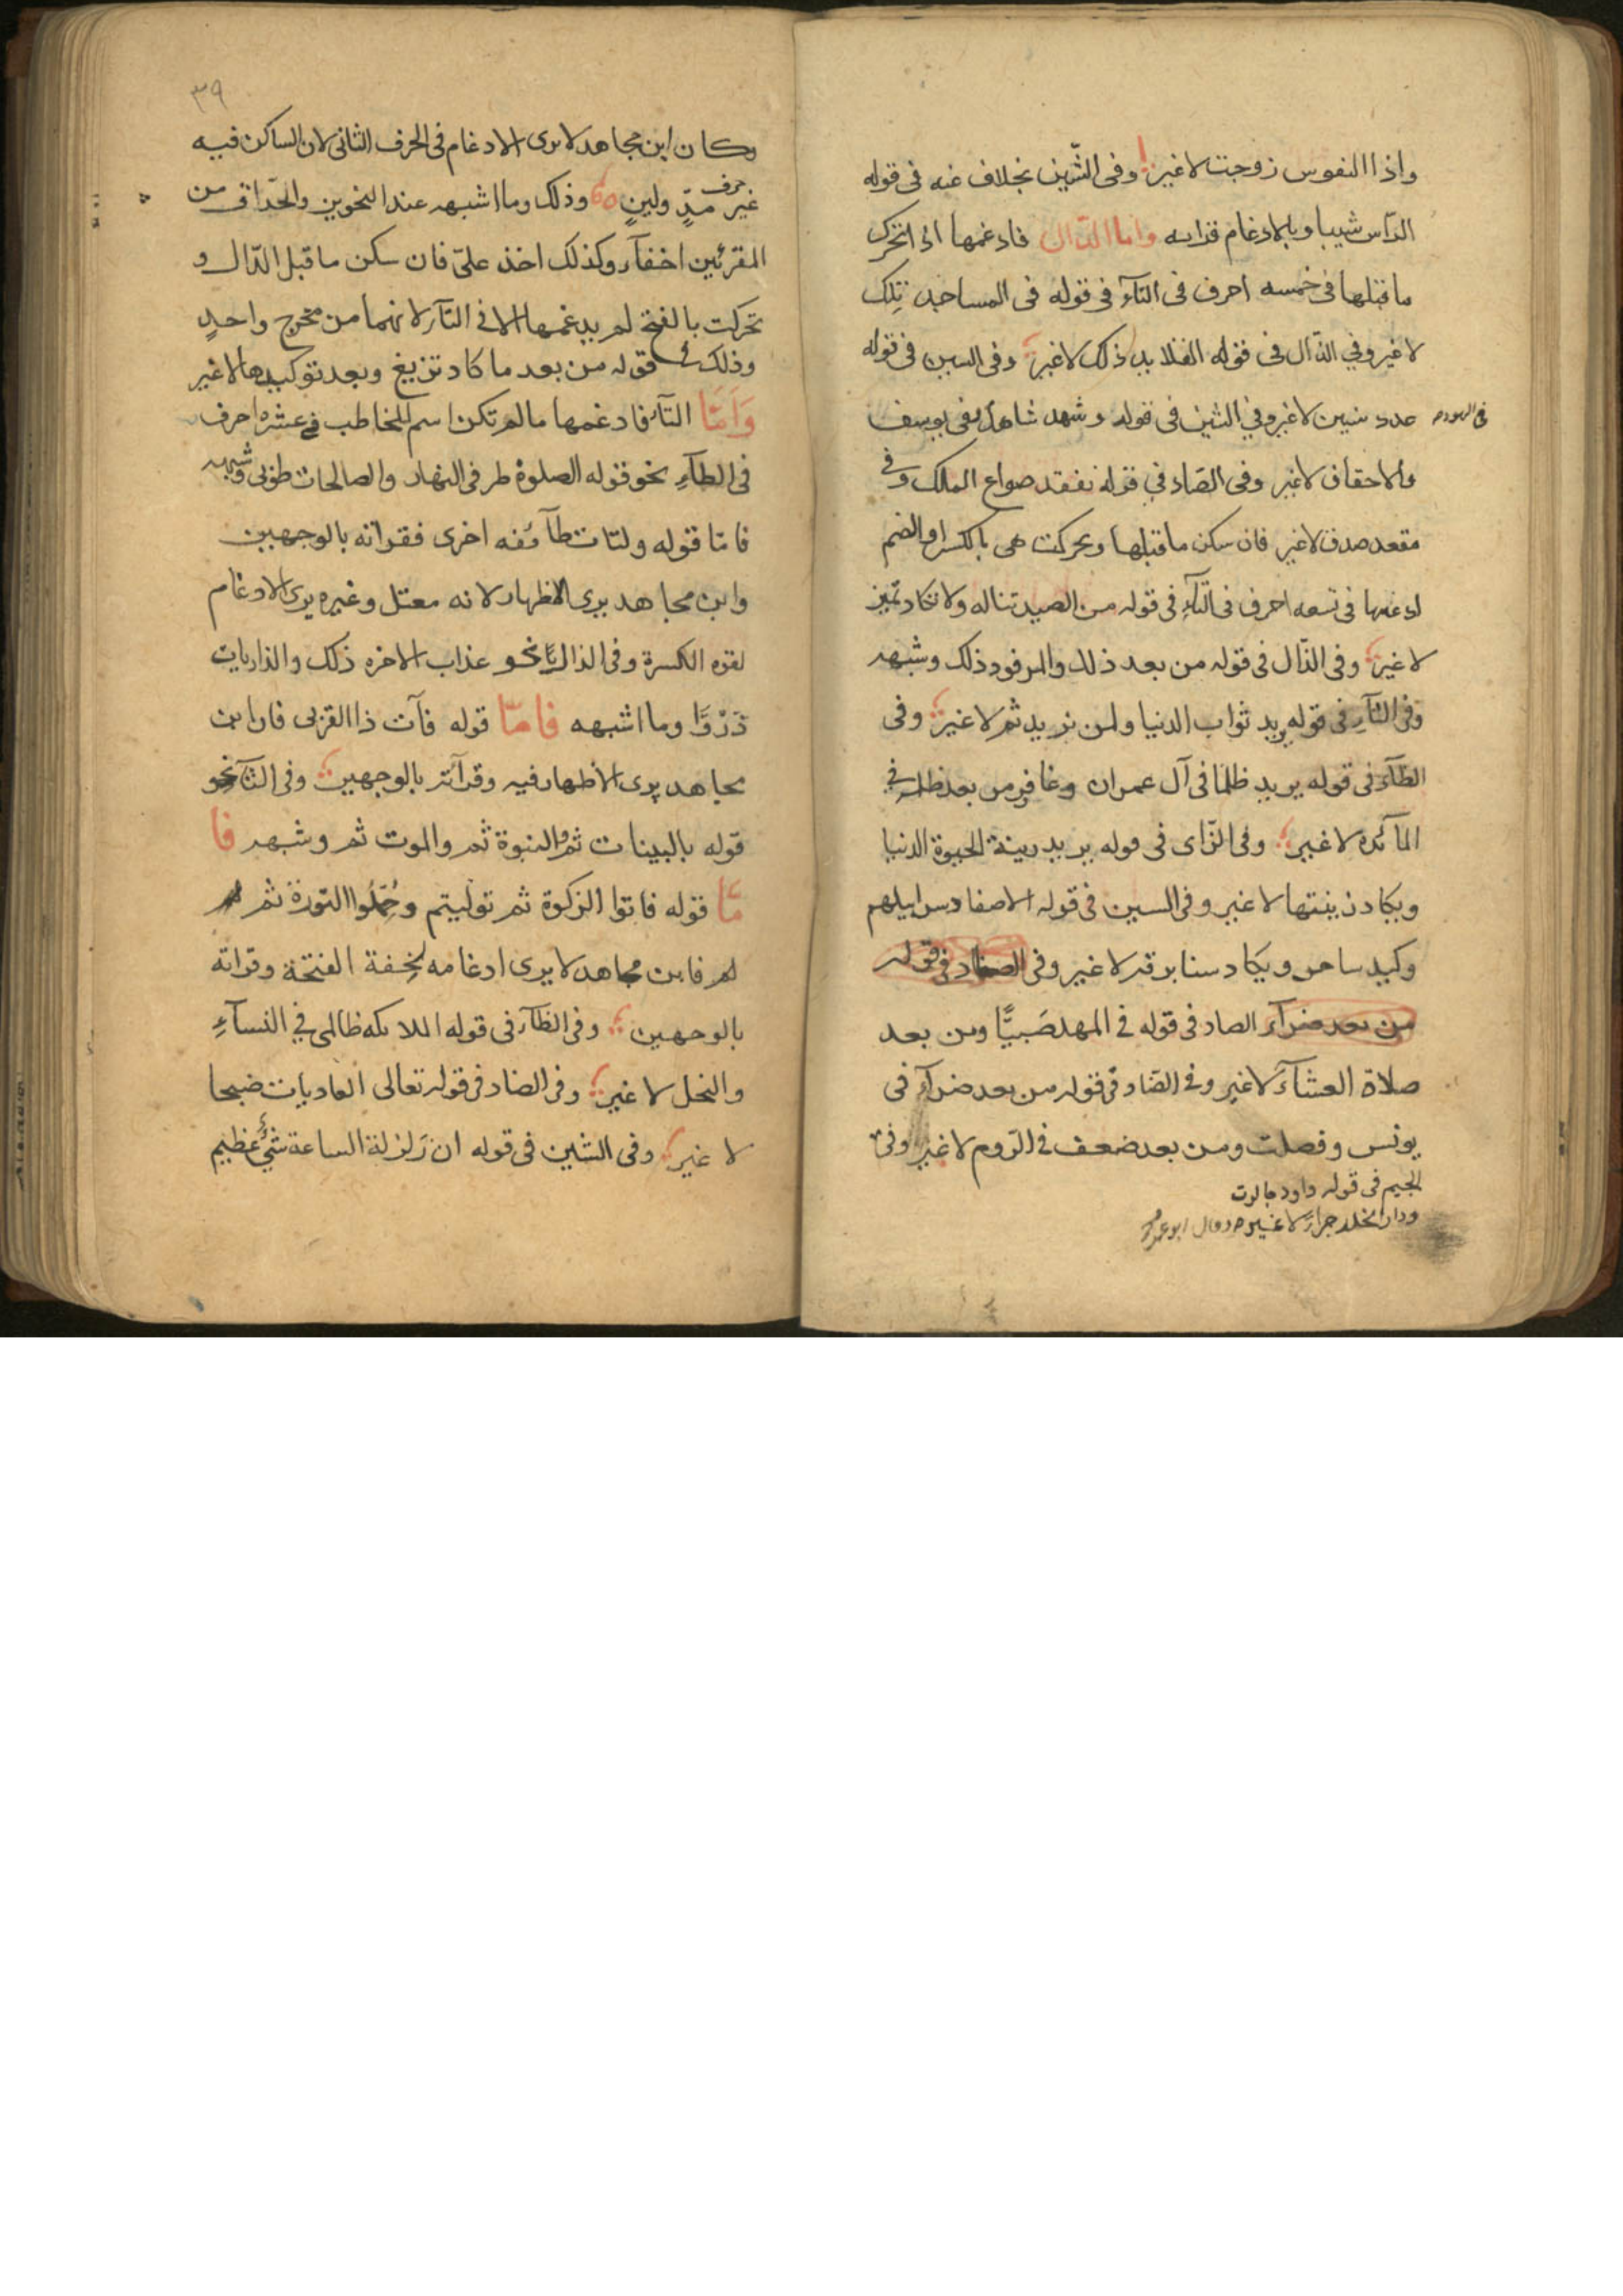 واذا النفوس زوجت لاغير وفى الشّين بخلاف عنه فى قوله
الرّاس شيبا وبالادغام قراته واما الدّال فادغمها اذا تحرك
ما قبلها فى خمسه احرف فى التآء فى قوله فى المساجد تلك
لاغير وفي الذّال فى قوله القلايد ذلك لاغير وفى السين فى قوله
عدد سنين لاغير وفي الشين فى قوله وشهد شاهد فى يوسف
والاحقاف لاغير وفى الصّاد في قوله نفقد صواع الملك وفى
مقعد صدق لاغير فان سكن ما قبلها وتحركت هى بالكسر او الضم
ادغمها فى تسعه احرف فى التآء فى قوله من الصيد تناله ولا تكاد تميز
لا غير وفى الذّال فى قوله من بعد ذلك والمرفود ذلك وشبهه
وفى الثآء فى قوله يريد ثواب الدنيا ولمن نريد ثم لا غير وفى
الظآء فى قوله يريد ظلما فى آل عمران وغافر من بعد ظلمه في
المآئده لا غير وفى الزّاى فى قوله يريد زينة الحيوة الدنيا
ويكاد زيتها لا غير وفى السين فى قوله الاصفاد سرابيلهم
وكيد ساحر ويكاد سنا برقه لا غير وفى الضاد فى قوله
من بعد ضرآء الصاد فى قوله فى المهد صَبيًّا ومن بعد
صلاة العشآء لا غير وفى الضّاد فى قوله من بعد ضرآء فى
يونس وفصلت ومن بعد ضعف فى الرّوم لا غير وفى
الجيم فى قوله داود جالوت
ودار الخلد جزآء لا غير وقال ابو عمرو
٣٩
وكان ابن مجاهد لا يرى الادغام فى الحرف الثانى لان الساكن فيه
غير حرف مدٍّ ولينٍ وذلك وما اشبهه عند النحوين والحّذاق من
المقرئين اخفآء وكذلك اخذ علىّ فان سكن ما قبل الدّال و
تحركت بالفتح لم يدغمها الا فى التآء لانهما من مخرج واحدٍ
وذلك فى قوله من بعد ما كاد تزيغ وبعد توكيدها لا غير
وَامَّا التآء فادغمها ما لم تكن اسم المخاطب فى عشره احرف
فى الطآءِ نحو قوله الصلوة طرفى النهار والصالحات طوبى وشبهه
فامّا قوله ولتات طآئفه اخرى فقراته بالوجهين
وابن مجاهد يرى الاظهار لانه معتل وغيره يرى الادغام
لقوه الكسرة وفى الذال نحو عذاب الاخره ذلك والذاريات
ذَرْوًا وما اشبهه فامّا قوله فآت ذا القربى فان ابن
مجاهد يرى الاظهار فيه وقرآته بالوجهين وفى الثآء نحو
قوله بالبينات ثم والنبوة ثم والموت ثم وشبهه فا
مّا قوله فاتوا الزكوة ثم توليتم وحُمِّلُوا التورٰة ثم
لم فابن مجاهد لا يرى ادغامه لخفة الفتحة وقراته
بالوجهين وفى الظآء فى قوله الملائكه ظالمى في النسآءِ
والنحل لا غير وفى الضاد فى قوله تعالى العاديات ضبحا
لا غير وفى الشين فى قوله ان زلزلة الساعة شئٌ عظيم